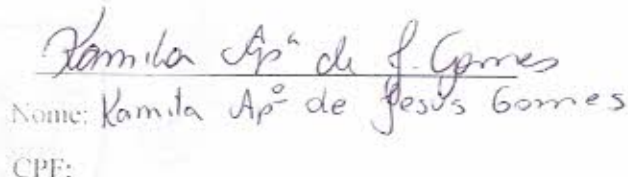 Kamila Apª de J. Gomes
Nome: Kamila Apª de Jesus Gomes
CPF: